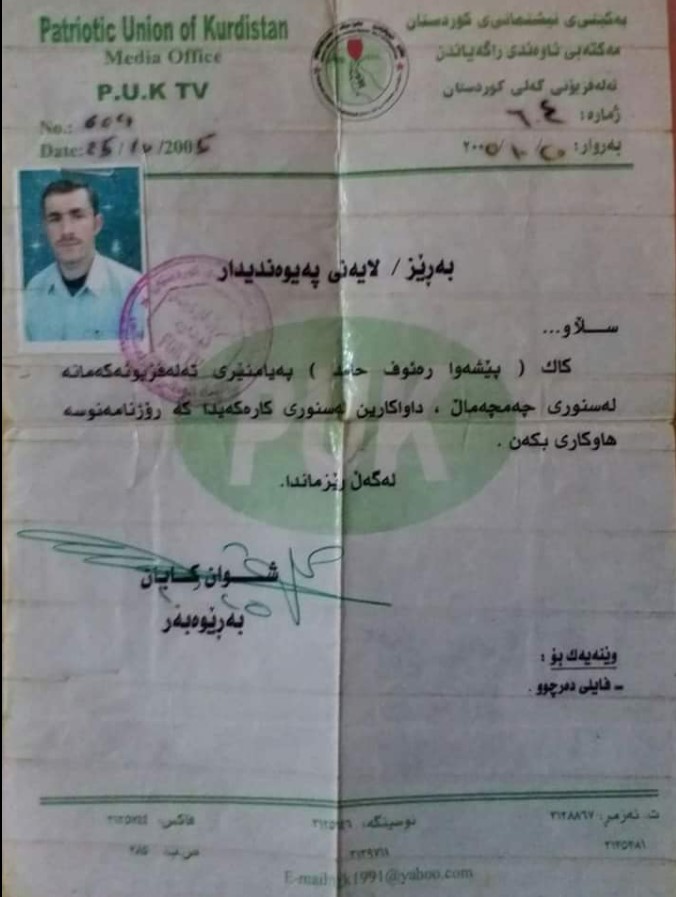 Patriotic Union of Kurdistan
Media Office
P.U.K TV
No.: 604
Date: 25/10/2005
یەکێتی نیشتمانی کوردستان
مەکتەبی ناوەندی راگەیاندن
تەلەفزیۆنی گەلی کوردستان
ژمارە:
بەروار:
بەرێز / لایەنی پەیوەندیدار
ســڵاو...
کاک ( پێشەوا رەئوف حامد ) پەیامنێری تەلەفزیونەکەمانە
لەسنوری چەمچەماڵ ، داواکارین لەسنوری کارەکەیدا کە رۆژنامەنوسە
هاوکاری بکەن .
لەگەڵ رێزماندا.
PUK
شـــوان کـابان
بەرێوەبەر
وێنەیەک بۆ :
ـ فایلی دەرچوو .
ت. ئەزمڕ: ٣١٢٨٨٦٧
نوسینگە:
فاکس:
٣١٢٥٢٨١
ص.ب: ٢٨٥
@yahoo.com